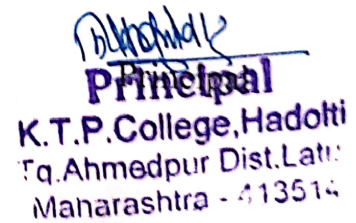 Principal
K.T.P.College,Hadolti
Tq.Ahmedpur Dist.Latu
Maharashtra - 413514